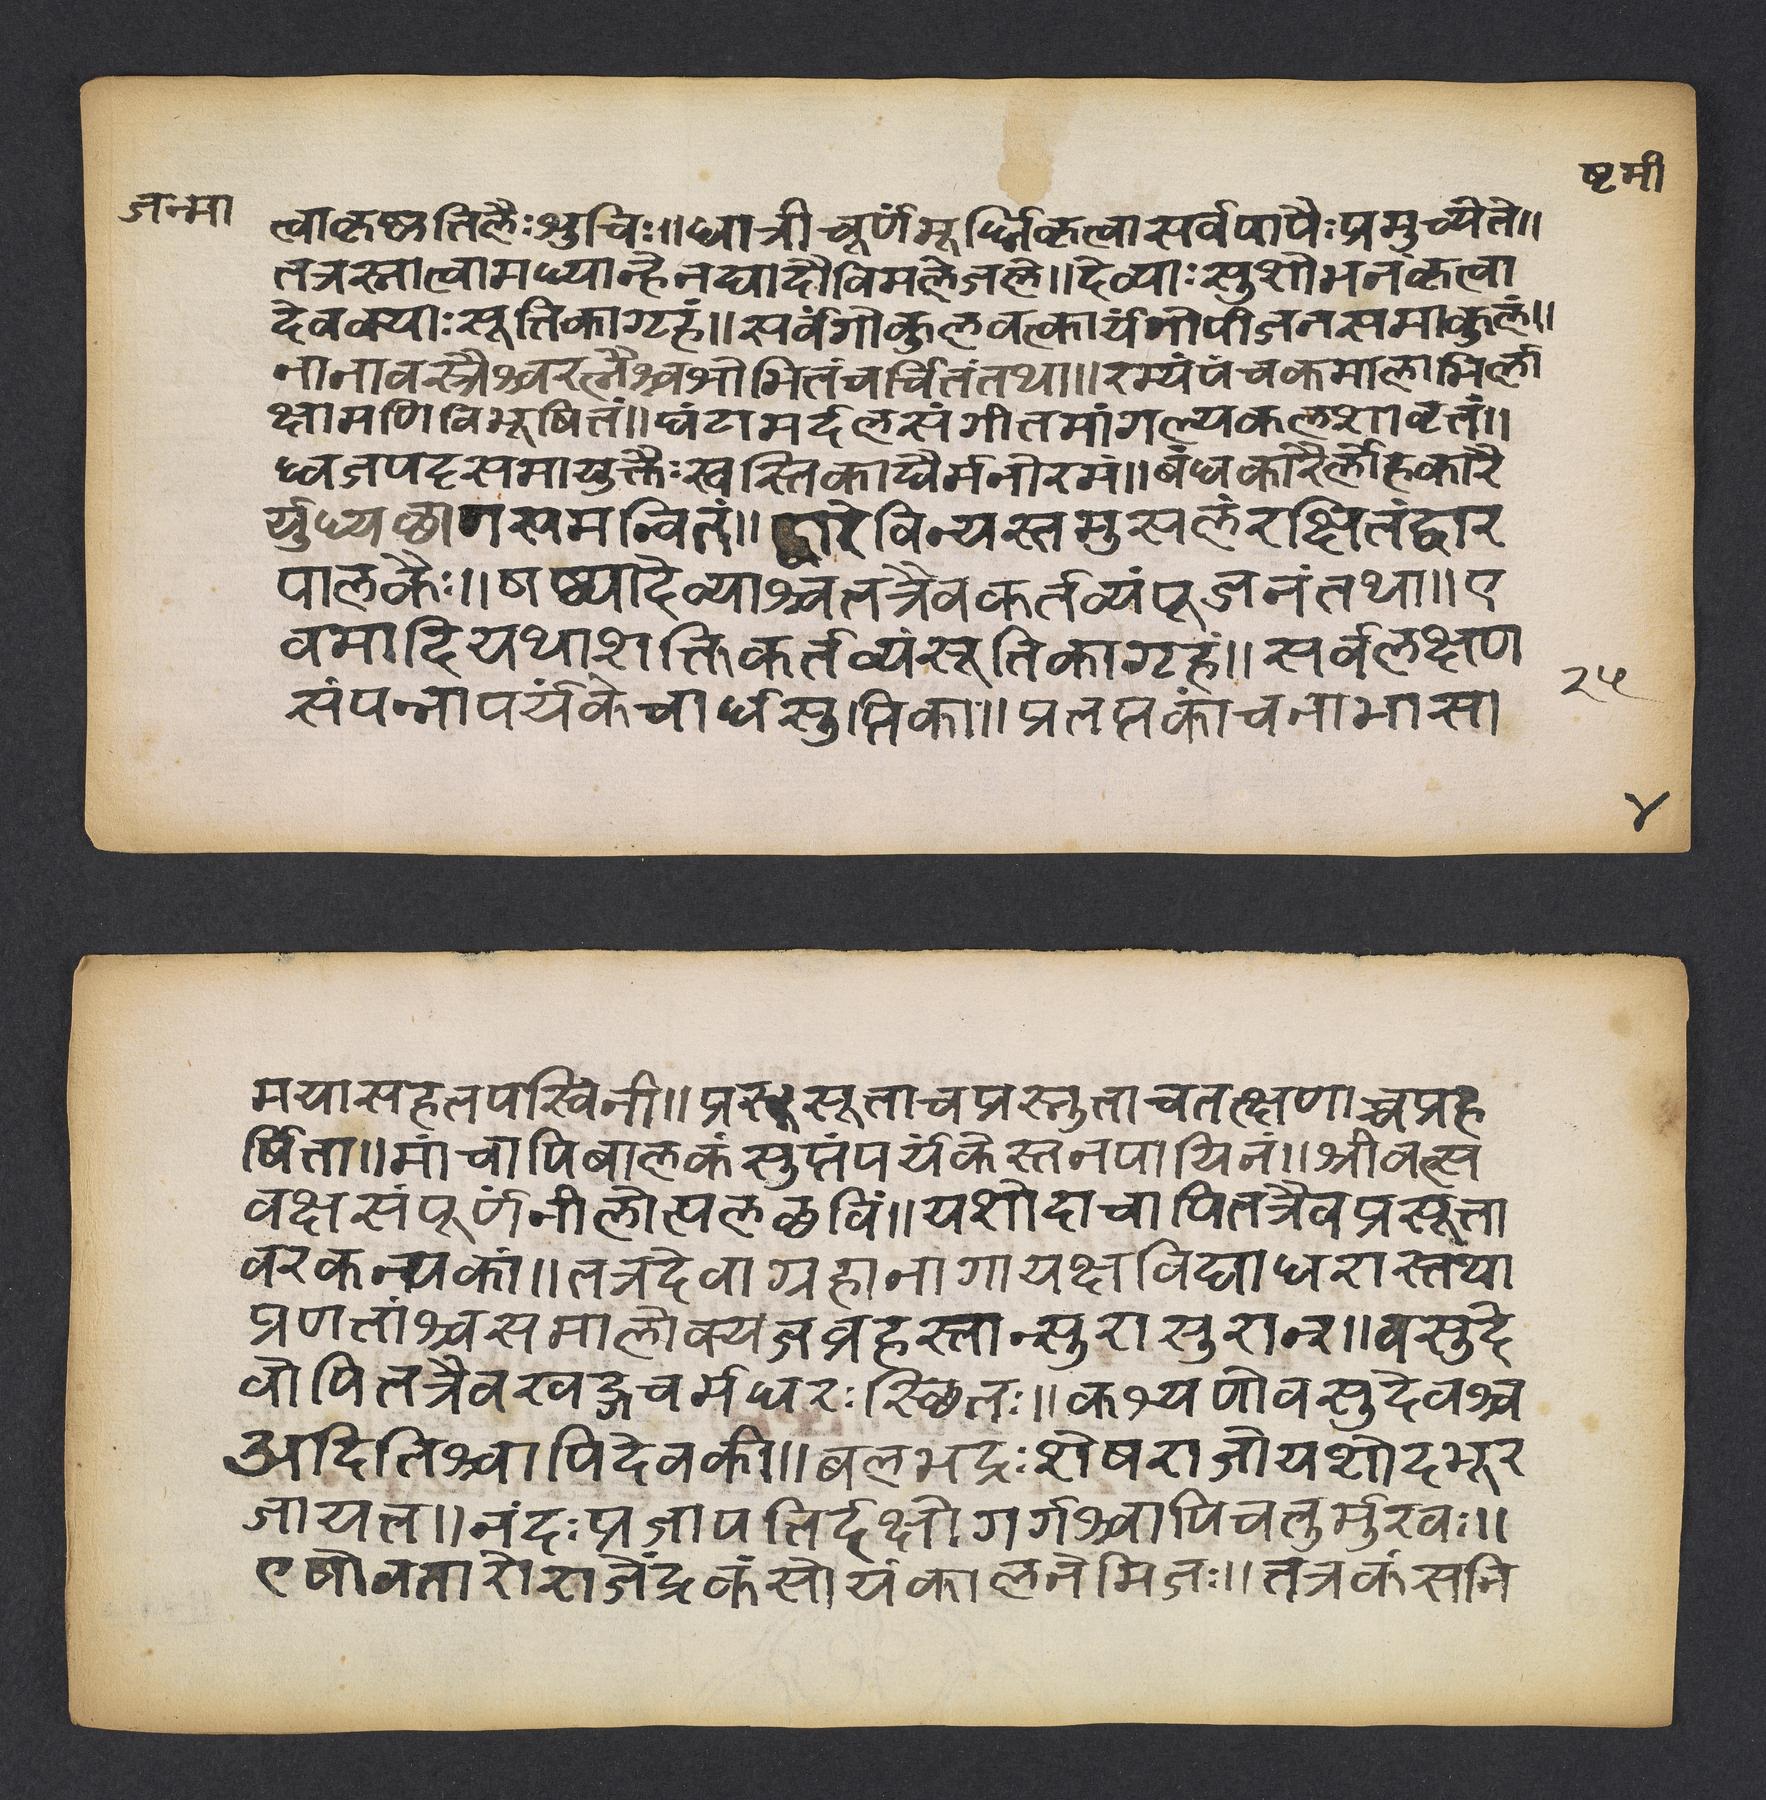 जन्मा
ष्टमी
त्वाकृष्णतिलैःशुचिः॥धात्रीचूर्णंमूर्ध्निकृत्वासर्वपापैःप्रमुच्येते॥
तत्रस्नात्वामध्यान्हेनद्यादौविमलेजले॥देव्याःसुशोभनंकृत्वा
देवक्याःसूतिकागृहं॥सर्वंगोकुलवत्कार्यंगोपीजनसमाकुलं॥
नानावस्त्रैश्चरत्नैश्चशोभितंचर्चितंतथा॥रम्यंपंचकमालाभिर्ला
क्षामणिविभूषितं॥घंटामर्दलसंगीतमांगल्यकलशावृतं॥
ध्वजपद्मसमायुक्तैःस्वस्तिकाद्यैर्मनोरमं॥बंधकारैर्लोहकारै
र्युध्यछागसमन्वितं॥द्वारेविन्यस्तमुसलंरक्षितंद्वार
पालकैः॥षष्ठ्यादेव्याश्चतत्रैवकर्तव्यंपूजनंतथा॥ए
वमादियथाशक्तिकर्तव्यंसूतिकागृहं॥सर्वलक्षण
संपन्नापर्यंकेचार्धसुप्तिका॥प्रतप्तकांचनाभासा
२५
४
मयासहतपस्विनी॥प्रसूताचप्रस्नुताचतत्क्षणाच्चप्रह
र्षिता॥मांचापिबालकंसुप्तंपर्यंकेस्तनपायिनं॥श्रीवत्स
वक्षसंपूर्णंनीलोत्पलछविं॥यशोदाचापितत्रैवप्रसूता
वरकन्यकां॥तत्रदेवाग्रहानागायक्षविद्याधरास्तथा
प्रणतांश्चसमालोक्यजव्रहस्तान्सुरासुरान्॥वसुदे
वोपितत्रैवखड्गचर्मधरःस्छितः॥कश्यपोवसुदेवश्च
अदितिश्चापिदेवकी॥बलभद्रःशेषराजोयशोदभूर
जायत॥नंदःप्रजापतिर्दक्षोगर्गश्चापिचतुर्मुखः॥
एषोवतारोराजेंद्रकंसोयंकालनेमिजः॥तत्रकंसनि